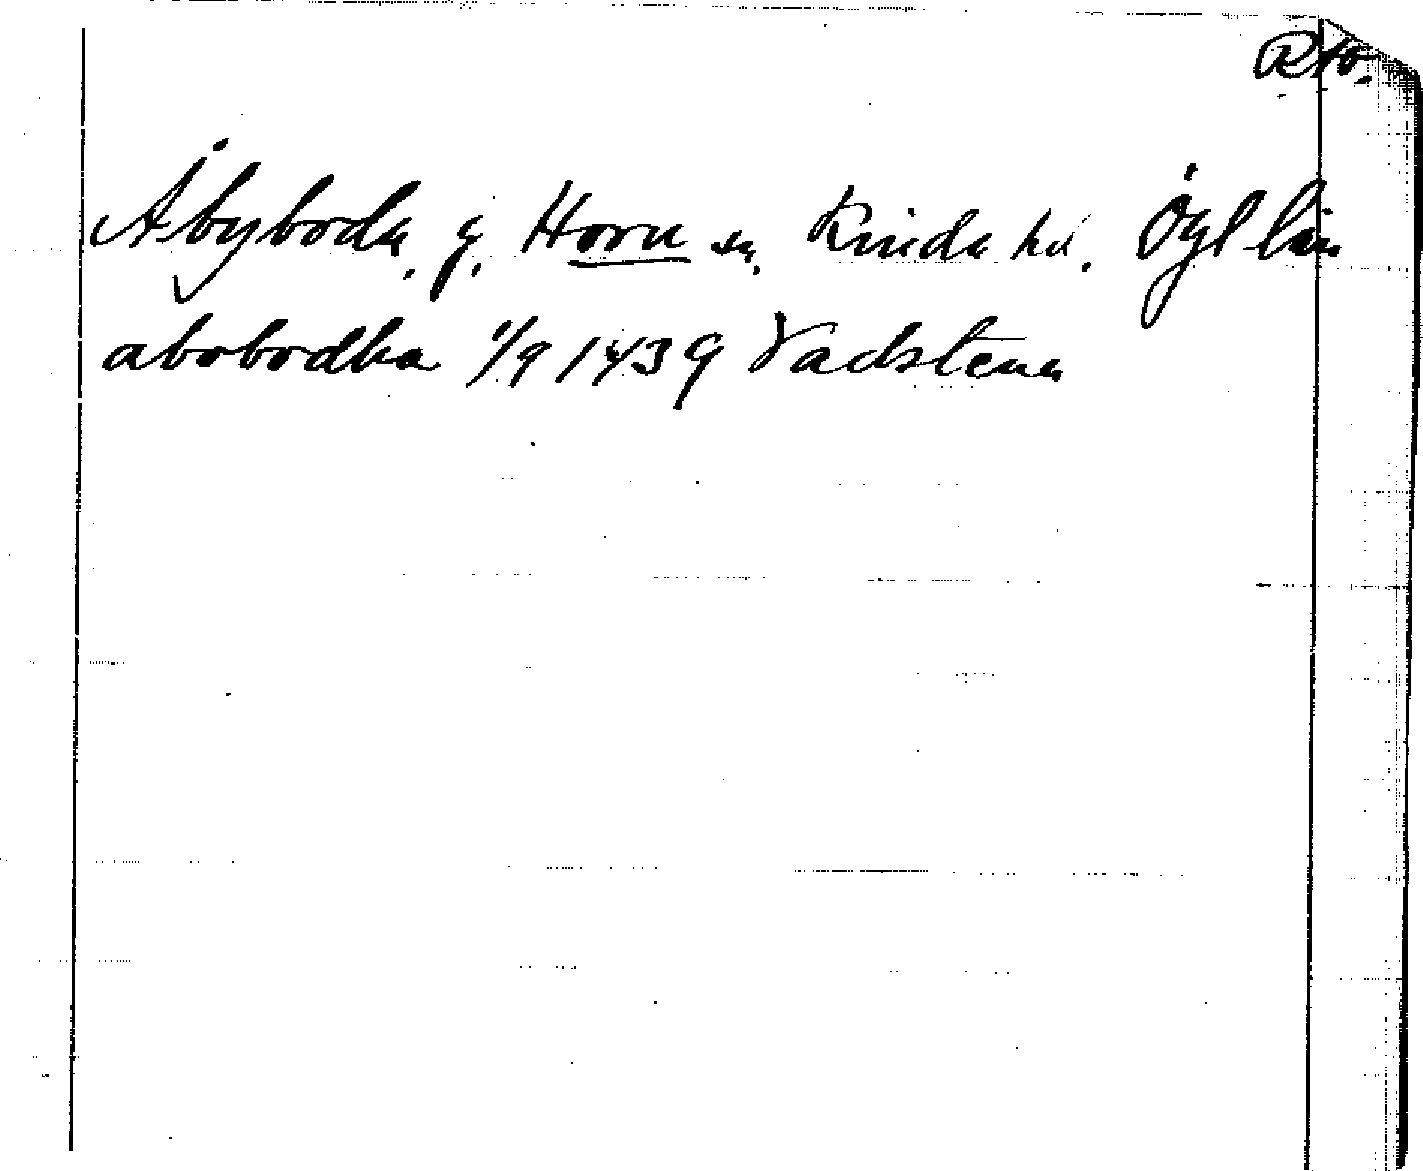 Rto.
Åbyboda, g. Horn sn, Kinda hd. Ögl län
abobodha 1/9 1439 Vadstena